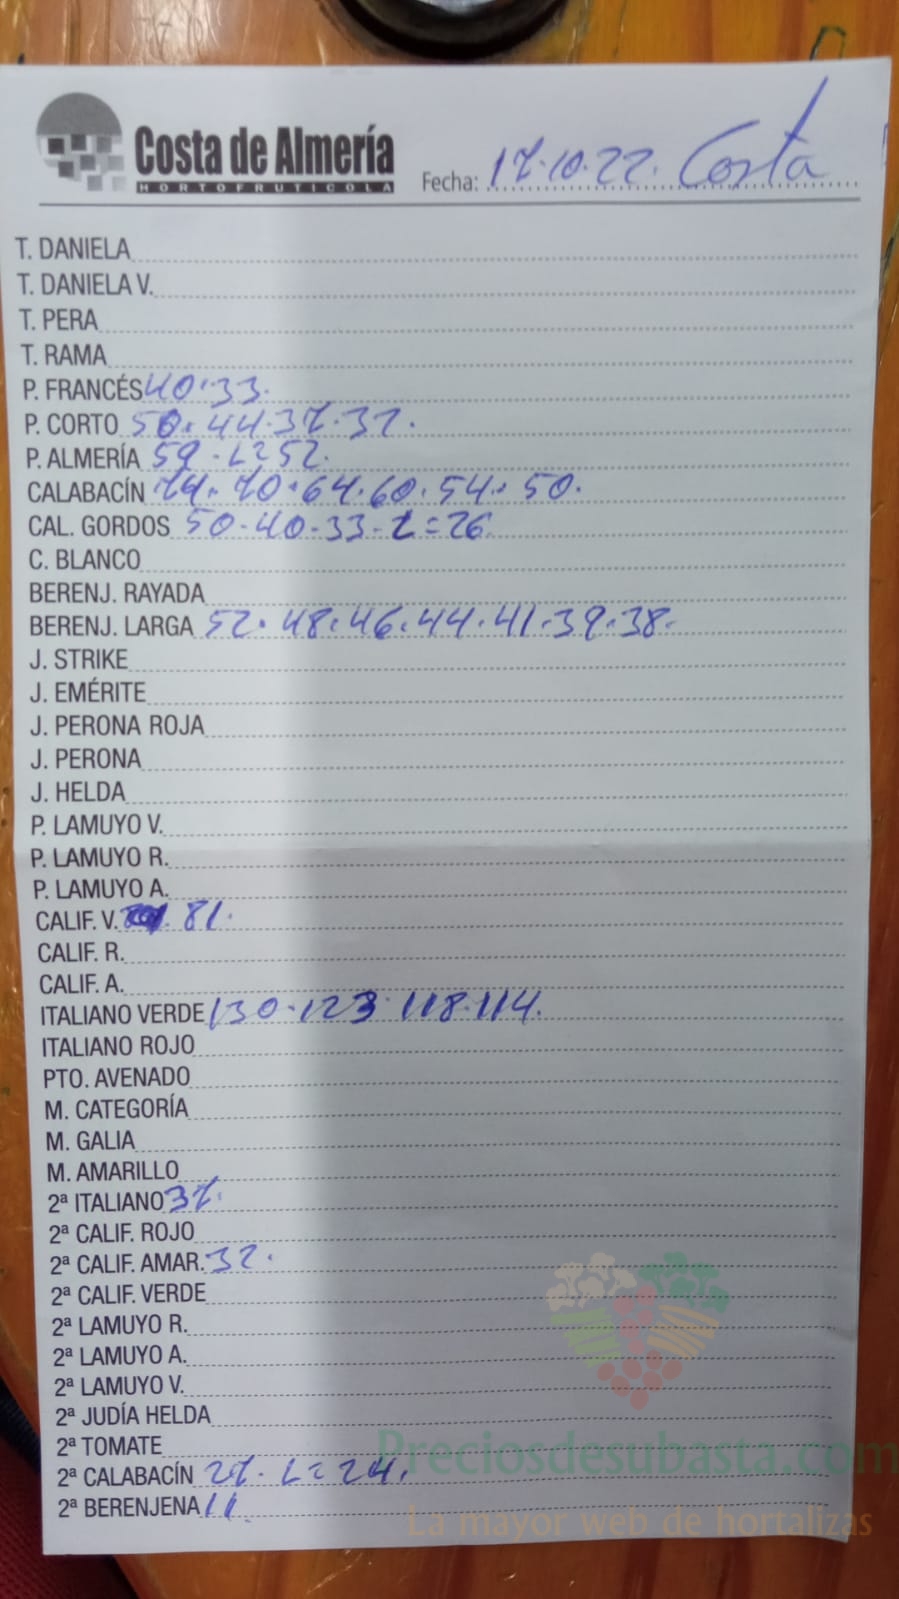 Costa de Almería
HORTOFRUTICOLA
Fecha: 17.10.22. Costa
T. DANIELA
T. DANIELA V.
T. PERA
T. RAMA
P. FRANCÉS 40.33.
P. CORTO 50.44.37.32.
P. ALMERÍA 59.L=52.
CALABACÍN 74.70.64.60.54.50.
CAL. GORDOS 50.40.33.L=26.
C. BLANCO
BERENJ. RAYADA
BERENJ. LARGA 52.48.46.44.41.39.38.
J. STRIKE
J. EMÉRITE
J. PERONA ROJA
J. PERONA
J. HELDA
P. LAMUYO V.
P. LAMUYO R.
P. LAMUYO A.
CALIF. V. 81.
CALIF. R.
CALIF. A.
ITALIANO VERDE 130.123 118.114.
ITALIANO ROJO
PTO. AVENADO
M. CATEGORÍA
M. GALIA
M. AMARILLO
2ª ITALIANO 37.
2ª CALIF. ROJO
2ª CALIF. AMAR. 32.
2ª CALIF. VERDE
2ª LAMUYO R.
2ª LAMUYO A.
2ª LAMUYO V.
2ª JUDÍA HELDA
2ª TOMATE
Preciosdesubasta.com
2ª CALABACÍN 27.L=24.
2ª BERENJENA 11
La mayor web de hortalizas